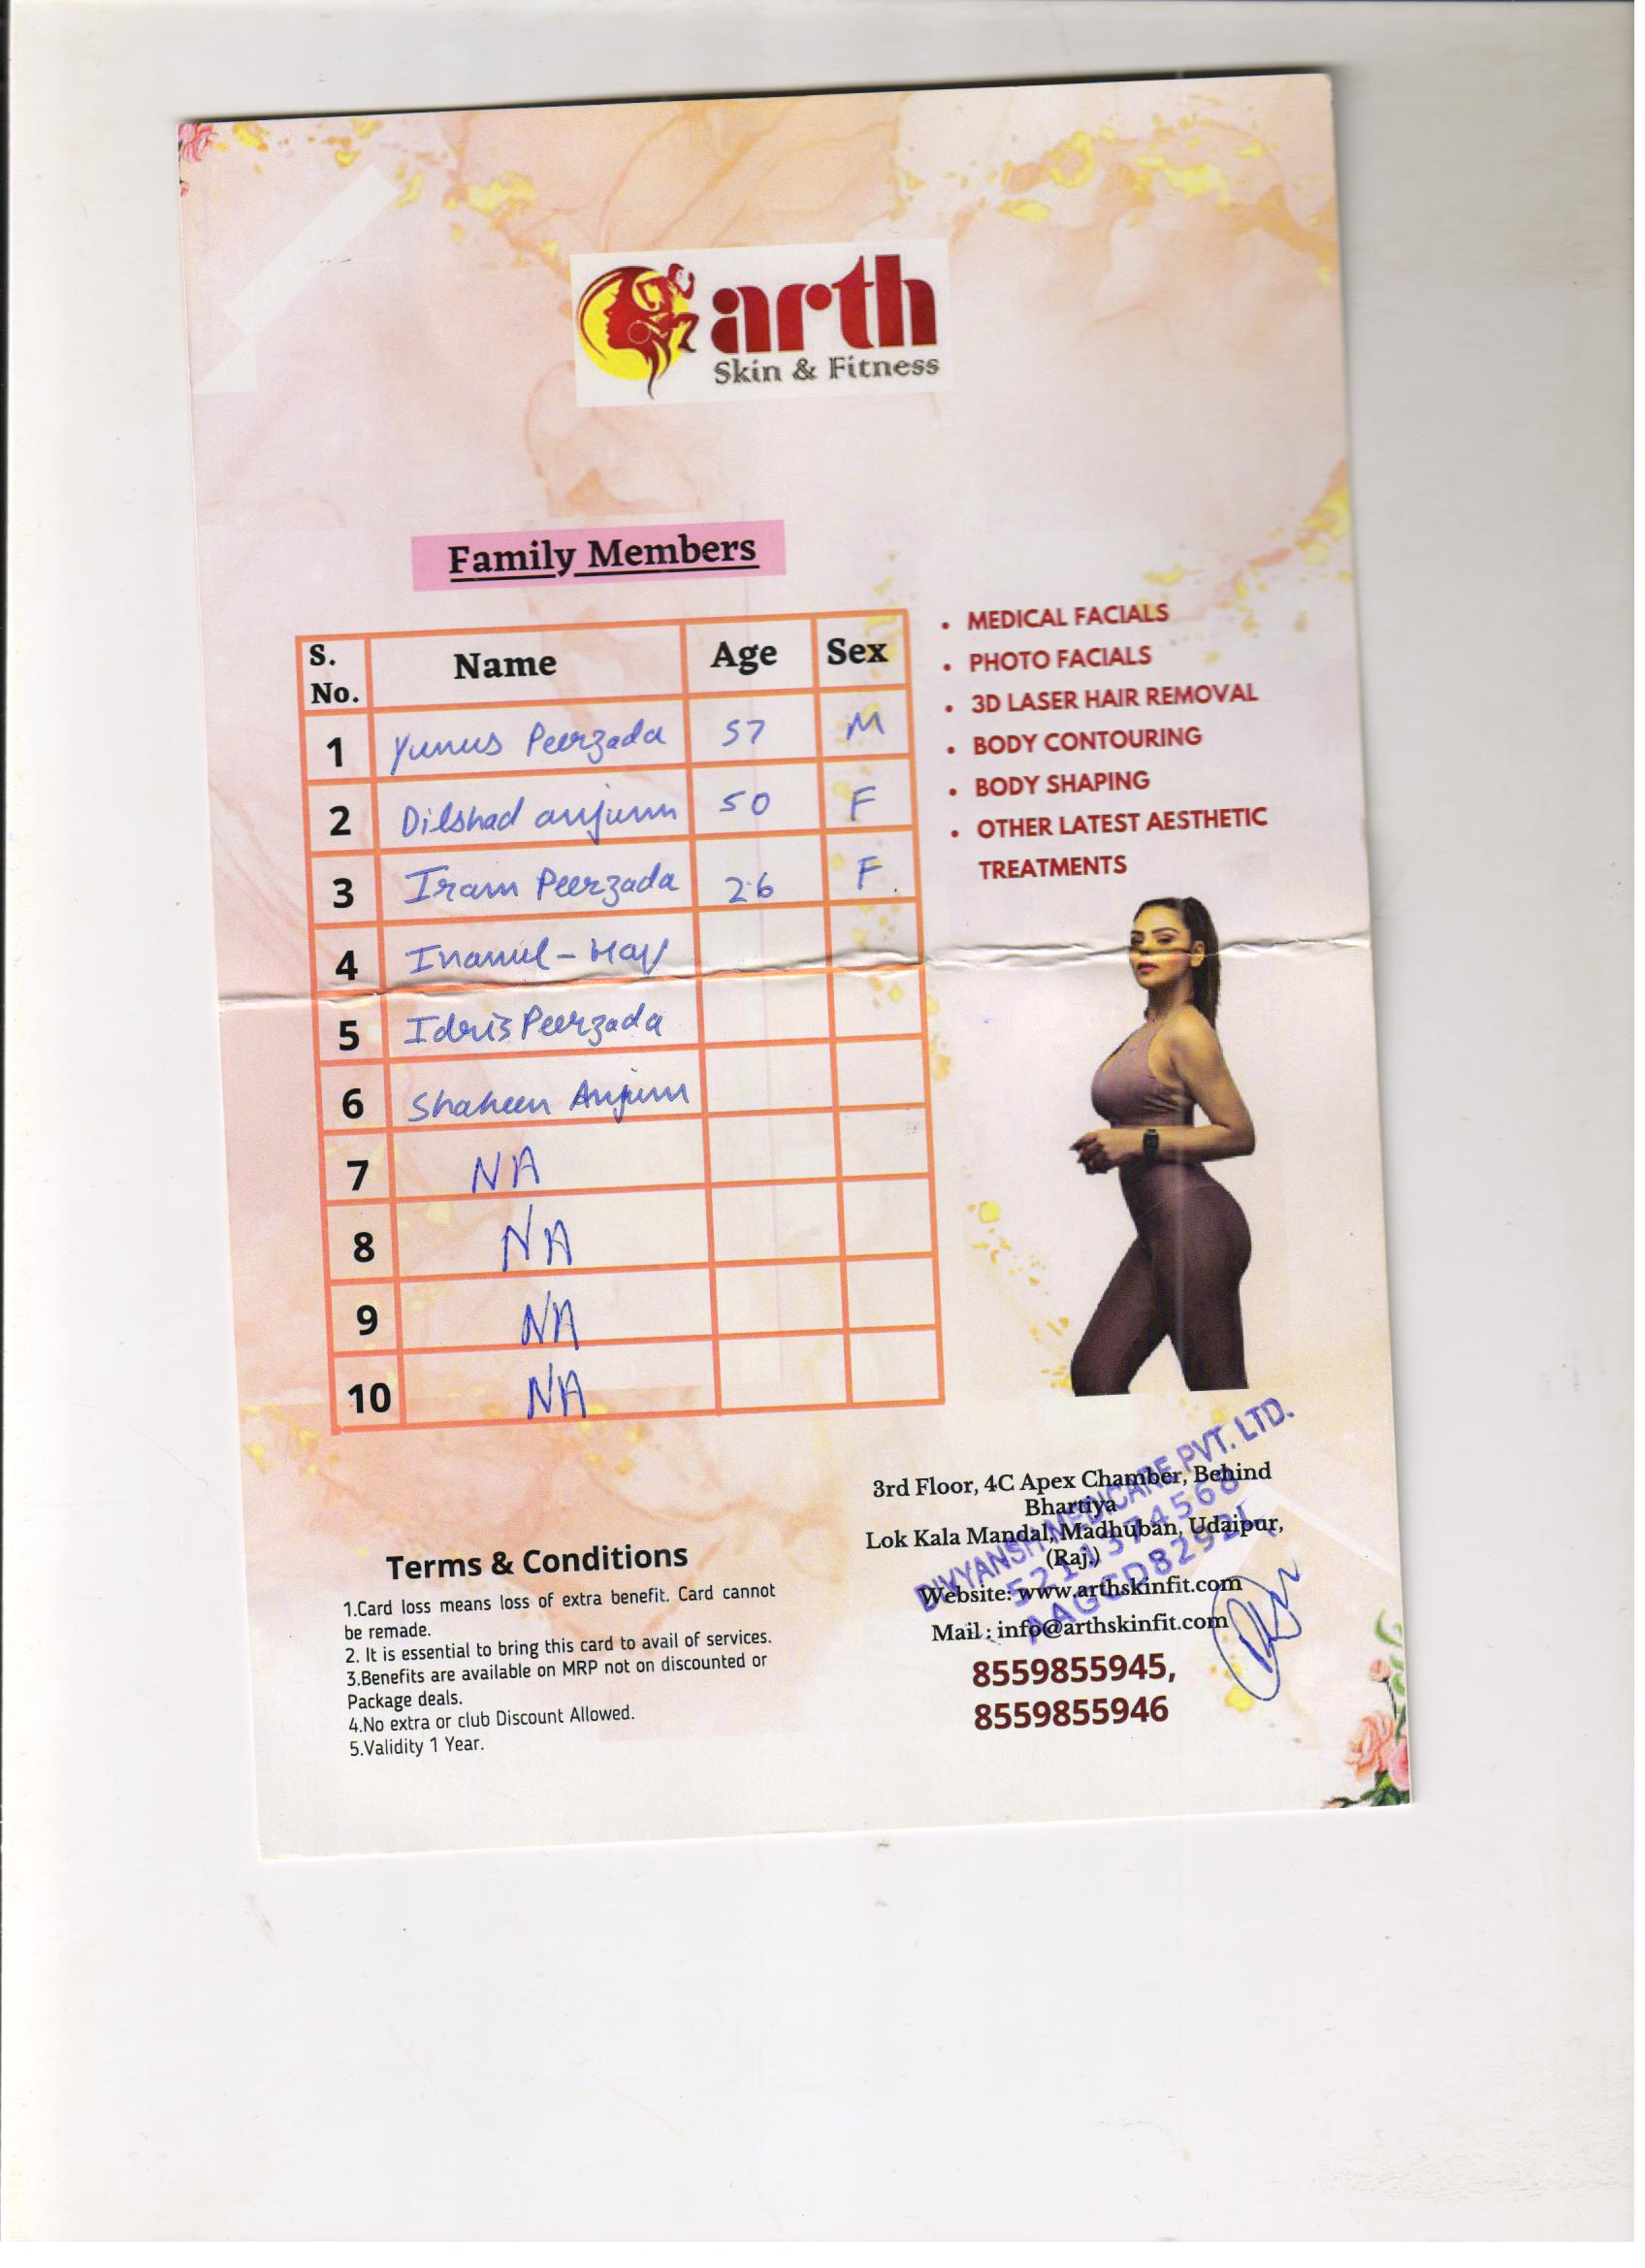 arth
Skin & Fitness
Family Members
S. No. Name Age Sex
1 Yunus Peerzada 57 M
2 Dilshad anjum 50 F
3 Iram Peerzada 26 F
4 Inamul-Haq
5 Idris Peerzada
6 Shaheen Anjum
7 NA
8 NA
9 NA
10 NA
• MEDICAL FACIALS
• PHOTO FACIALS
• 3D LASER HAIR REMOVAL
• BODY CONTOURING
• BODY SHAPING
• OTHER LATEST AESTHETIC
TREATMENTS
Terms & Conditions
1.Card loss means loss of extra benefit. Card cannot
be remade.
2. It is essential to bring this card to avail of services.
3.Benefits are available on MRP not on discounted or
Package deals.
4.No extra or club Discount Allowed.
5.Validity 1 Year.
3rd Floor, 4C Apex Chamber, Behind
Bhartiya
Lok Kala Mandal, Madhuban, Udaipur,
(Raj.)
Website: www.arthskinfit.com
Mail : info@arthskinfit.com
8559855945,
8559855946
DIVYANSH MEDICARE PVT. LTD.